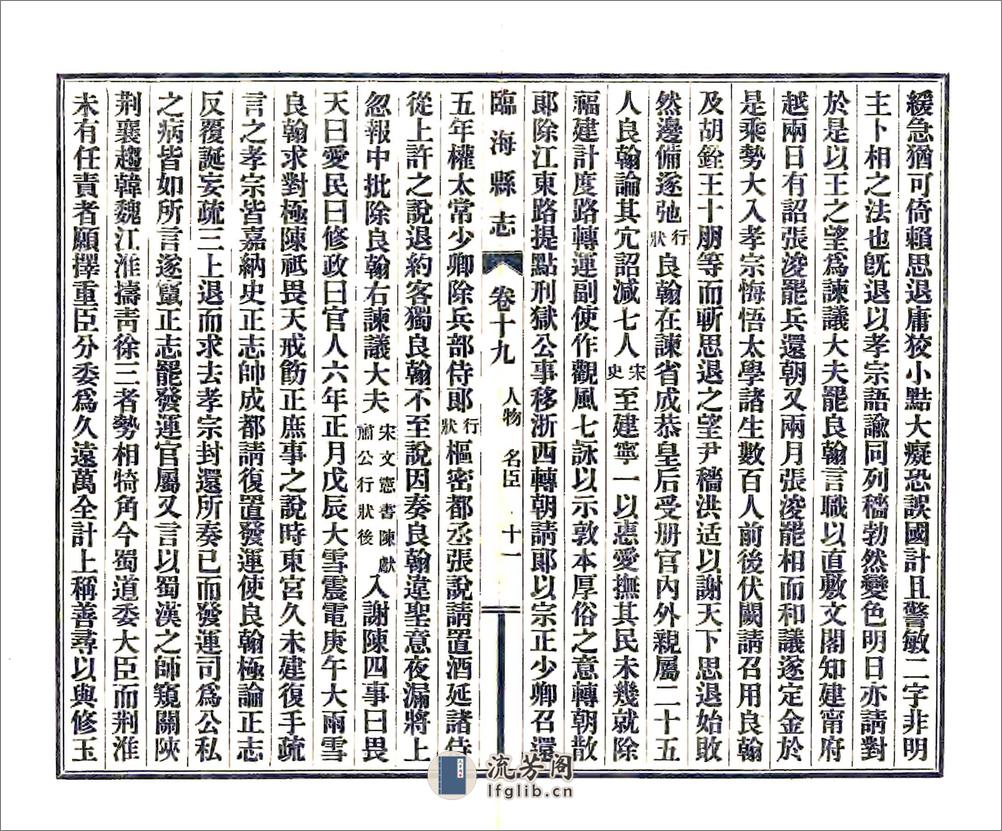 緩急猶可倚賴思退庸狡小黠大癡恐誤國計且警敏二字非明
主卜相之法也旣退以孝宗語諭同列穡勃然變色明日亦請對
於是以王之望爲諫議大夫罷良翰言職以直敷文閣知建甯府
越兩日有詔張浚罷兵還朝又兩月張浚罷相而和議遂定金於
是乘勢大入孝宗悔悟太學諸生數百人前後伏闕請召用良翰
及胡銓王十朋等而斬思退之望尹穡洪适以謝天下思退始敗
然邊備遂弛行狀良翰在諫省成恭皇后受册官內外親屬二十五
人良翰論其宂詔減七人宋史至建寧一以惠愛撫其民未幾就除
福建計度路轉運副使作觀風七詠以示敦本厚俗之意轉朝散
郞除江東路提點刑獄公事移浙西轉朝請郞以宗正少卿召還
臨海縣志 卷十九 人物 名臣 十一
五年權太常少卿除兵部侍郞行狀樞密都丞張說請置酒延諸侍
從上許之說退約客獨良翰不至說因奏良翰違聖意夜漏將上
忽報中批除良翰右諫議大夫宋文憲書陳獻肅公行狀後入謝陳四事曰畏
天曰愛民曰修政曰官人六年正月戊辰大雪震電庚午大雨雪
良翰求對極陳祗畏天戒飭正庶事之說時東宮久未建復手疏
言之孝宗皆嘉納史正志帥成都請復置發運使良翰極論正志
反覆誕妄疏三上退而求去孝宗封還所奏已而發運司爲公私
之病皆如所言遂竄正志罷發運官屬又言以蜀漢之師窺關陝
荆襄趨韓魏江淮擣靑徐三者勢相犄角今蜀道委大臣而荆淮
未有任責者願擇重臣分委爲久遠萬全計上稱善尋以與修玉
流芳阁
lfglib.cn